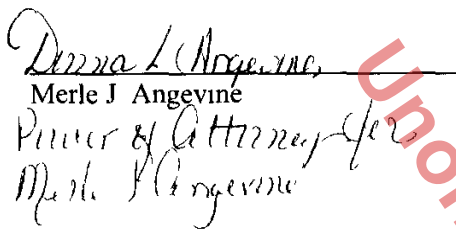 Donna L Angevine,
Merle J Angevine
Power of Attorney for
Merle J Angevine
Unof